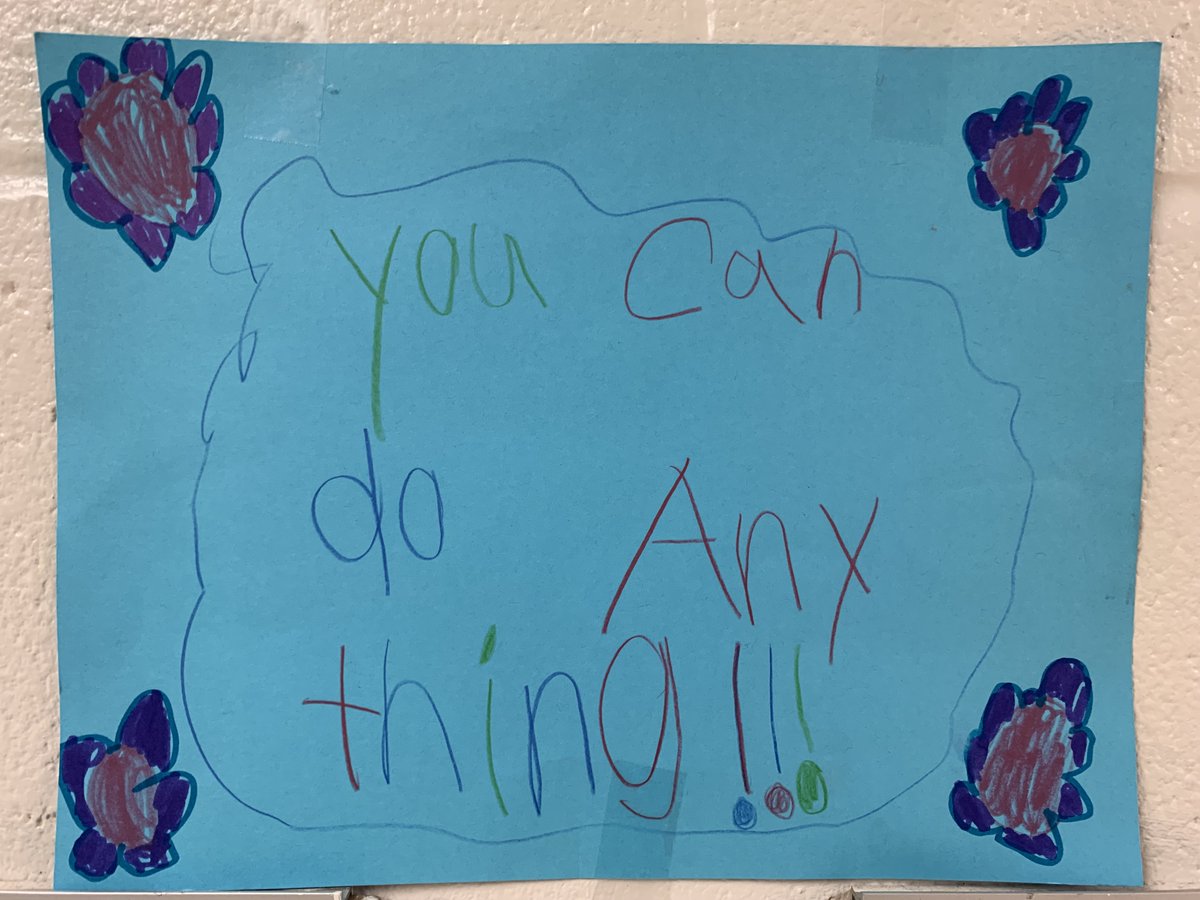 you can
do Any
thing!!!